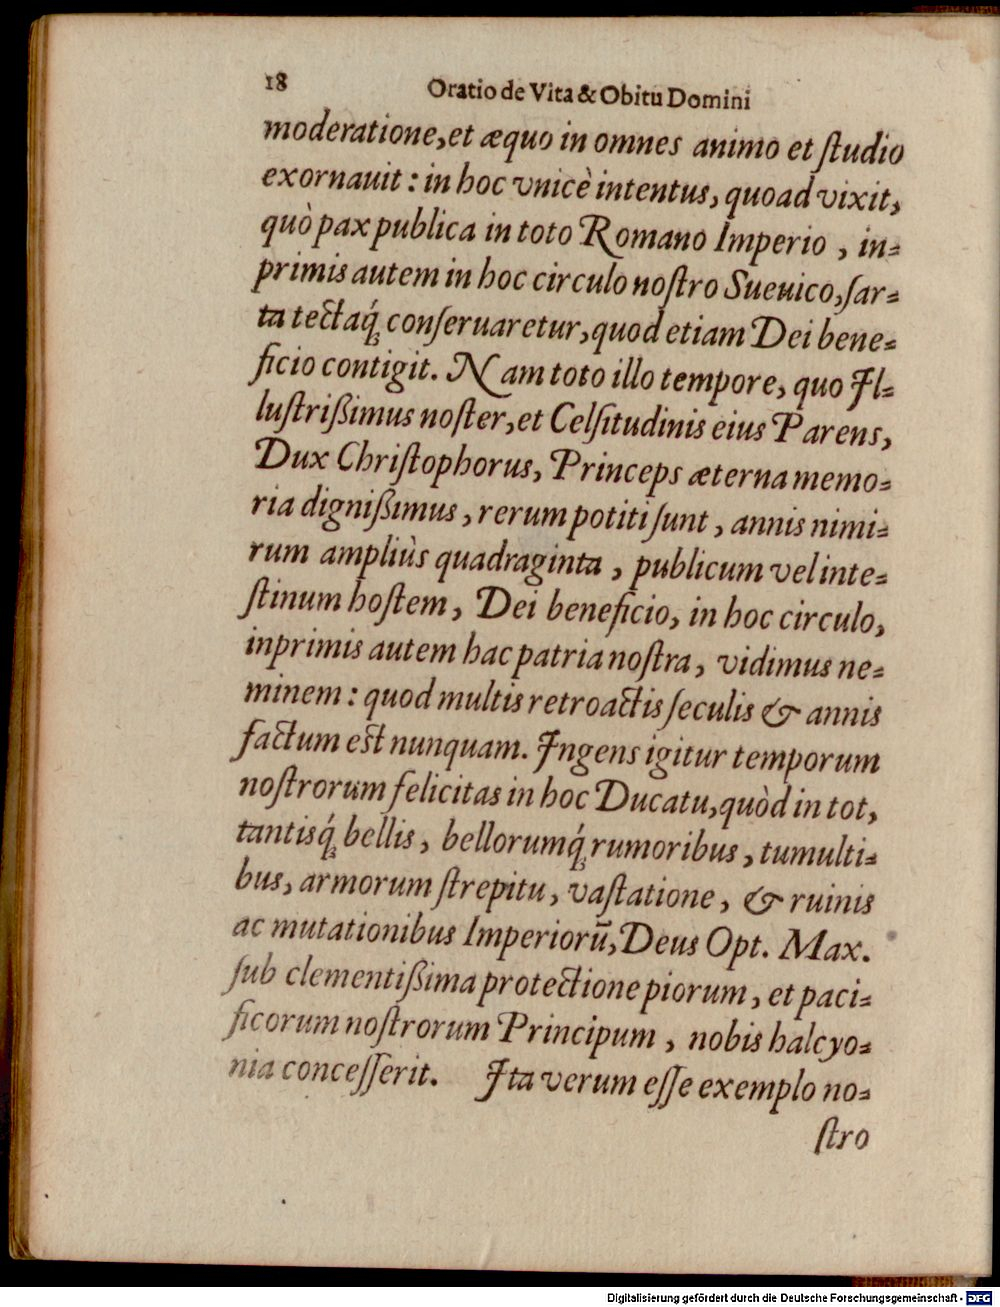 18 Oratio de Vita & Obitu Domini
moderatione, et æquo in omnes animo et ſtudio
exornauit: in hoc vnicè intentus, quoad vixit,
quò pax publica in toto Romano Imperio, in-
primis autem in hoc circulo noſtro Sueuico, ſar-
ta tectaq́ꝫ conſeruaretur, quod etiam Dei bene-
ficio contigit. Nam toto illo tempore, quo Il-
luſtrißimus noſter, et Celſitudinis eius Parens,
Dux Chriſtophorus, Princeps æterna memo-
ria dignißimus, rerum potiti ſunt, annis nimi-
rum ampliùs quadraginta, publicum vel inte-
ſtinum hoſtem, Dei beneficio, in hoc circulo,
inprimis autem hac patria noſtra, vidimus ne-
minem: quod multis retroactis ſeculis & annis
factum eſt nunquam. Ingens igitur temporum
noſtrorum felicitas in hoc Ducatu, quòd in tot,
tantisq́ꝫ bellis, bellorumq́ꝫ rumoribus, tumulti-
bus, armorum ſtrepitu, vaſtatione, & ruinis
ac mutationibus Imperiorū, Deus Opt. Max.
ſub clementißima protectione piorum, et paci-
ficorum noſtrorum Principum, nobis halcyo-
nia conceſſerit. Ita verum eſſe exemplo no-
ſtro
Digitalisierung gefördert durch die Deutsche Forschungsgemeinschaft - DFG